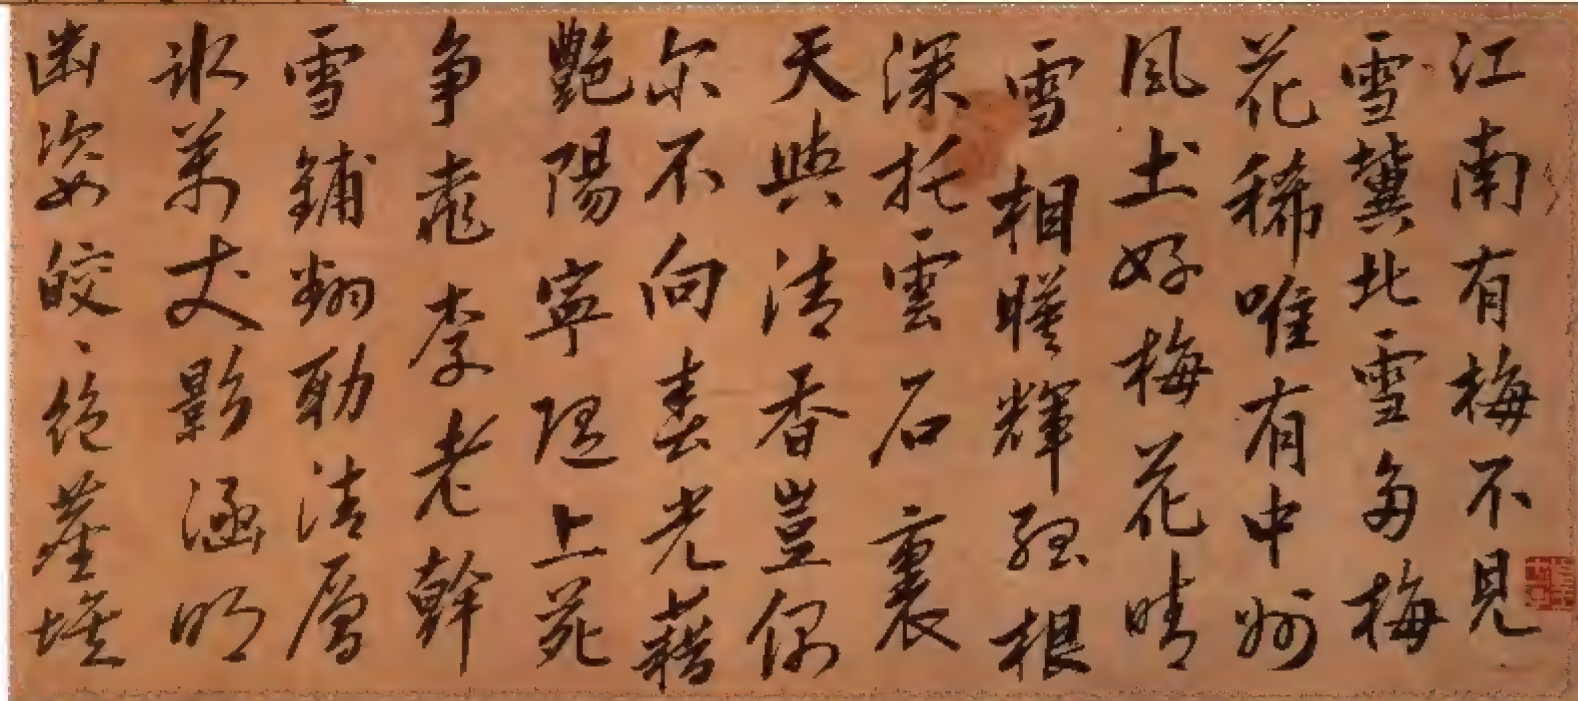 江南有梅不見
雪冀北雪多梅
花稀唯有中州
風土好梅花晴
雪相暎輝孤根
深托雲石裏
天與清香豈偶
尓不向春光藉
艷陽寧隨上苑
爭桃李老幹
雪鋪翻勁清層
氷萬丈影涵明
幽姿皎、絕塵埃